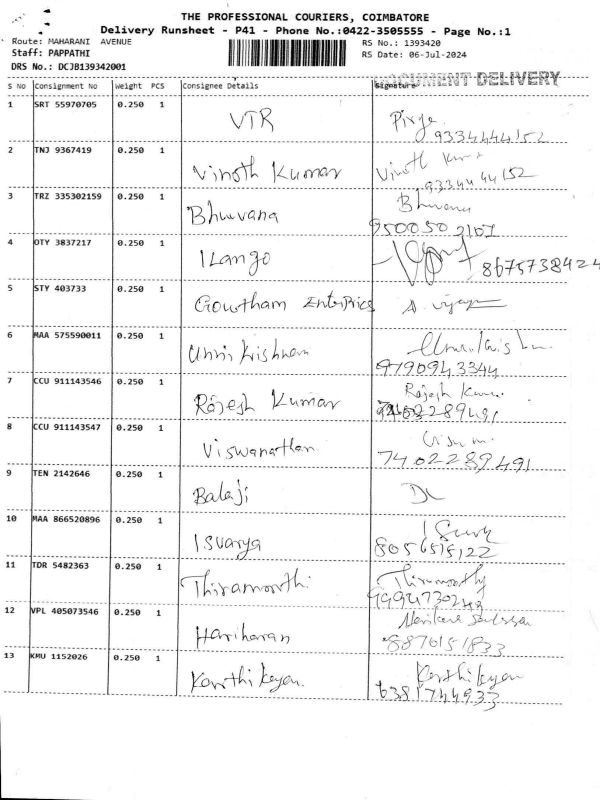 THE PROFESSIONAL COURIERS, COIMBATORE
Delivery Runsheet - P41 - Phone No.:0422-3505555 - Page No.:1
Route: MAHARANI AVENUE RS No.: 1393420
Staff: PAPPATHI RS Date: 06-Jul-2024
DRS No.: DCJB139342001
DOCUMENT DELIVERY
S No Consignment No Weight PCS Consignee Details Signature
1 SRT 55970705 0.250 1 VTR
9334444152
2 TNJ 9367419 0.250 1 Vinoth Kumar Vinoth
9334444152
3 TRZ 335302159 0.250 1 Bhuvana Bhuvana
4 OTY 3837217 0.250 1 ILango
8675738424
5 STY 403733 0.250 1 Gowtham EnterPrics
6 MAA 575590011 0.250 1 Unni Krishnan
9790943344
7 CCU 911143546 0.250 1 Rajesh Kumar Rajesh
8 CCU 911143547 0.250 1 Viswanathan
7402289491
9 TEN 2142646 0.250 1 Balaji
10 MAA 866520896 0.250 1 Isvarya
11 TDR 5482363 0.250 1 Thiramoorthi
12 VPL 405073546 0.250 1 Hariharan
8870151833
13 KMU 1152026 0.250 1 Karthikeyan Karthikeyan
6381744933